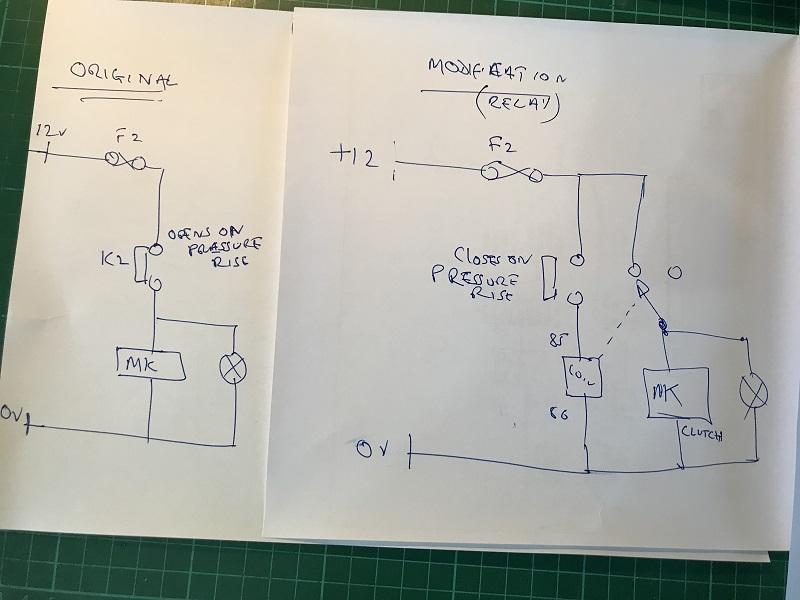 ORIGINAL
12v
F2
K2
OPENS ON
PRESSURE
RISE
MK
0V
MODIFICATION
(RELAY)
+12
F2
CLOSES ON
PRESSURE
RISE
85
COIL
86
MK
CLUTCH
0V